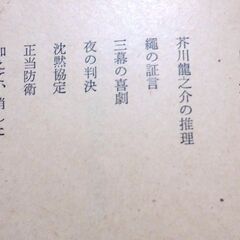 芥川龍之介の推理
縄の証言
三幕の喜劇
夜の判決
沈黙協定
正当防衛